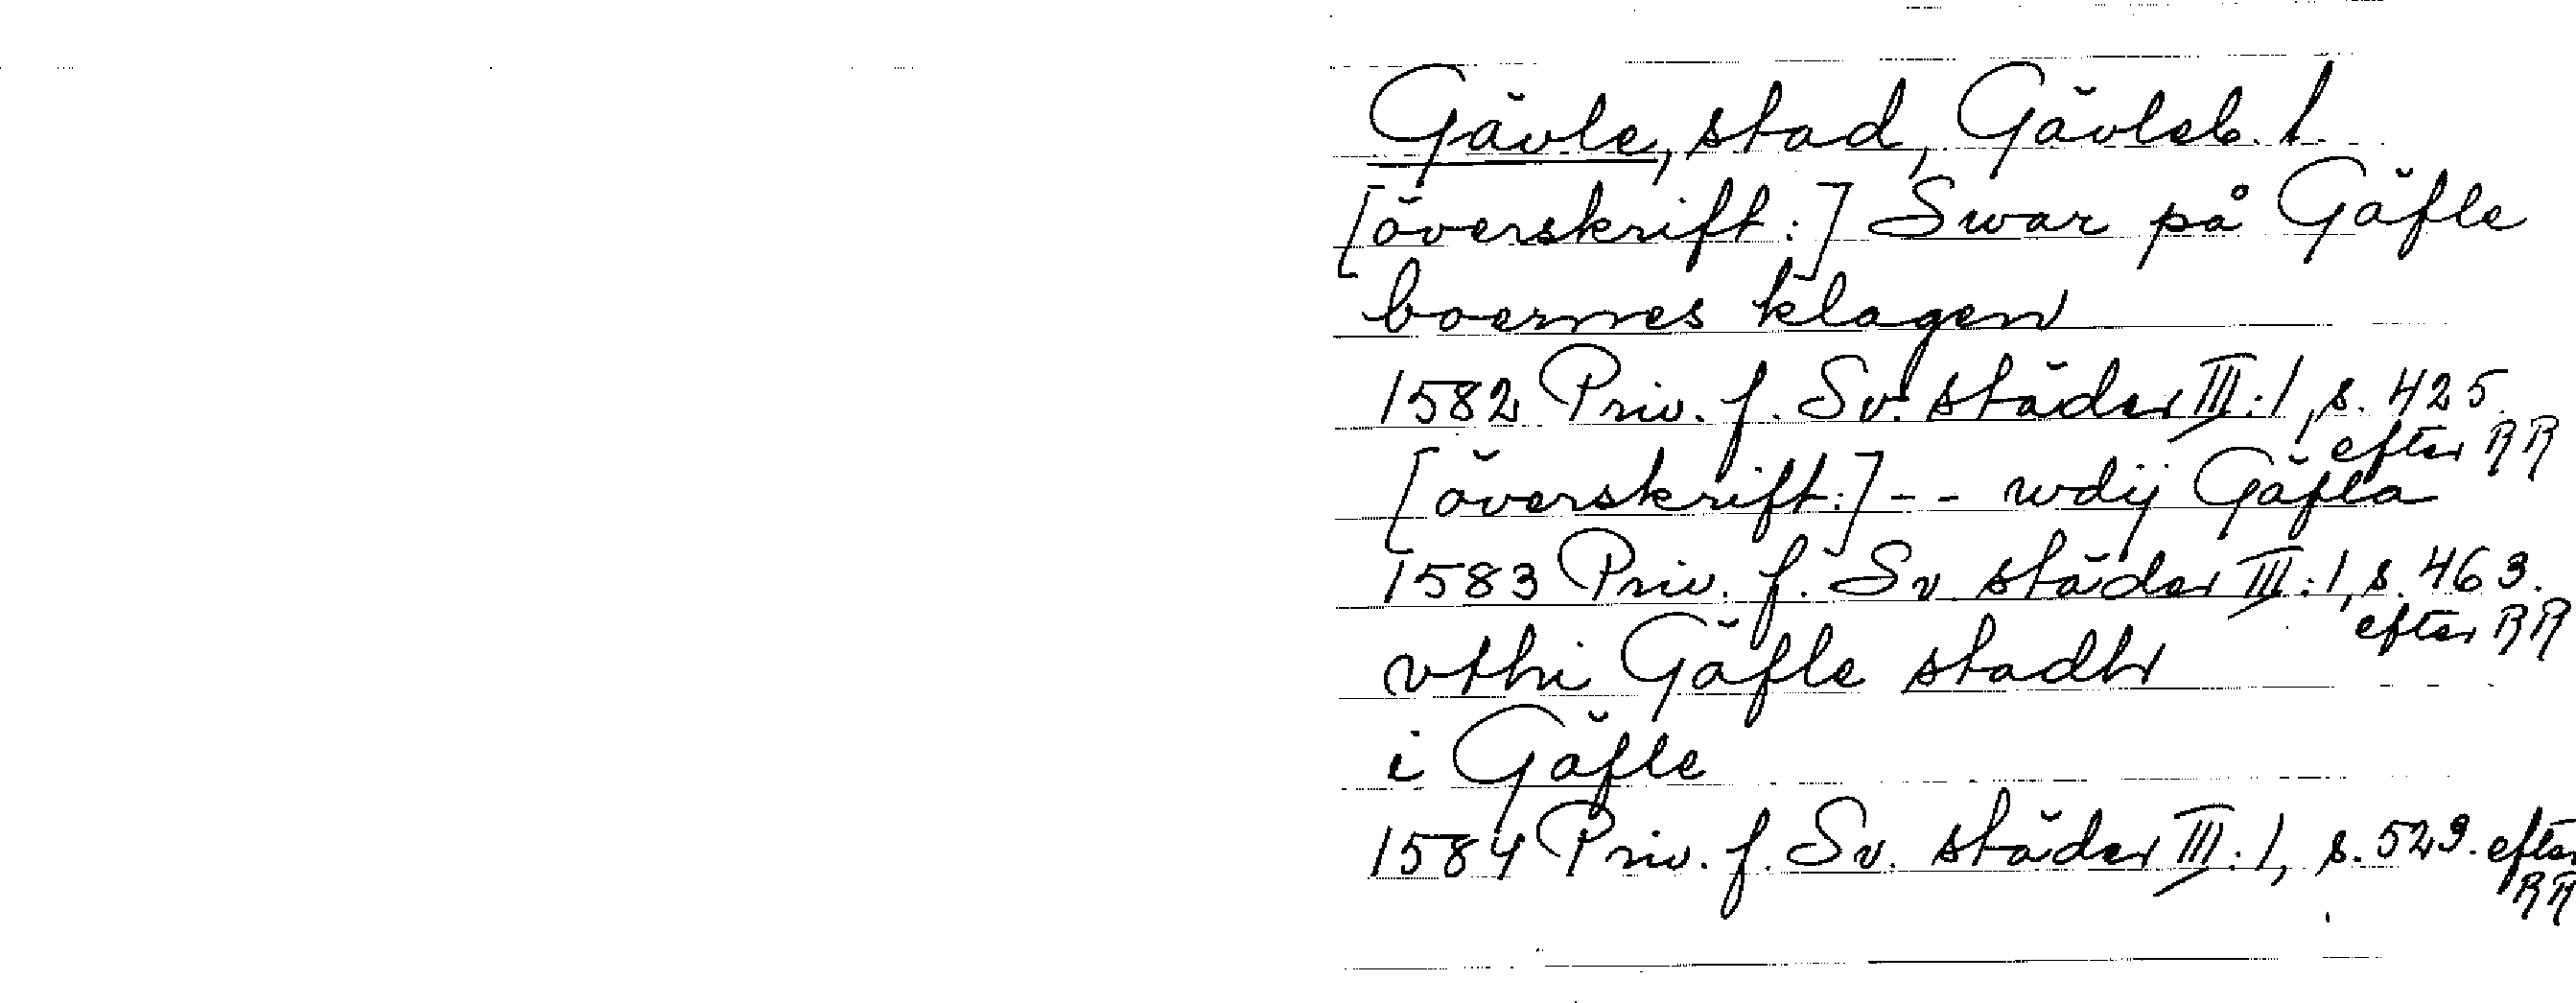 Gävle, stad, Gävleb. l.
[överskrift:] Swar på Gäfle
boernes klagen
1582 Priv. f. Sv. städer III:1, s. 425.
efter RR
[överskrift:] - - wdij Gäfla
1583 Priv. f. Sv. städer III:1, s. 463.
efter RR
vthi Gäfle stadh
i Gäfle
1584 Priv. f. Sv. städer III:1, s. 529. efter
RR